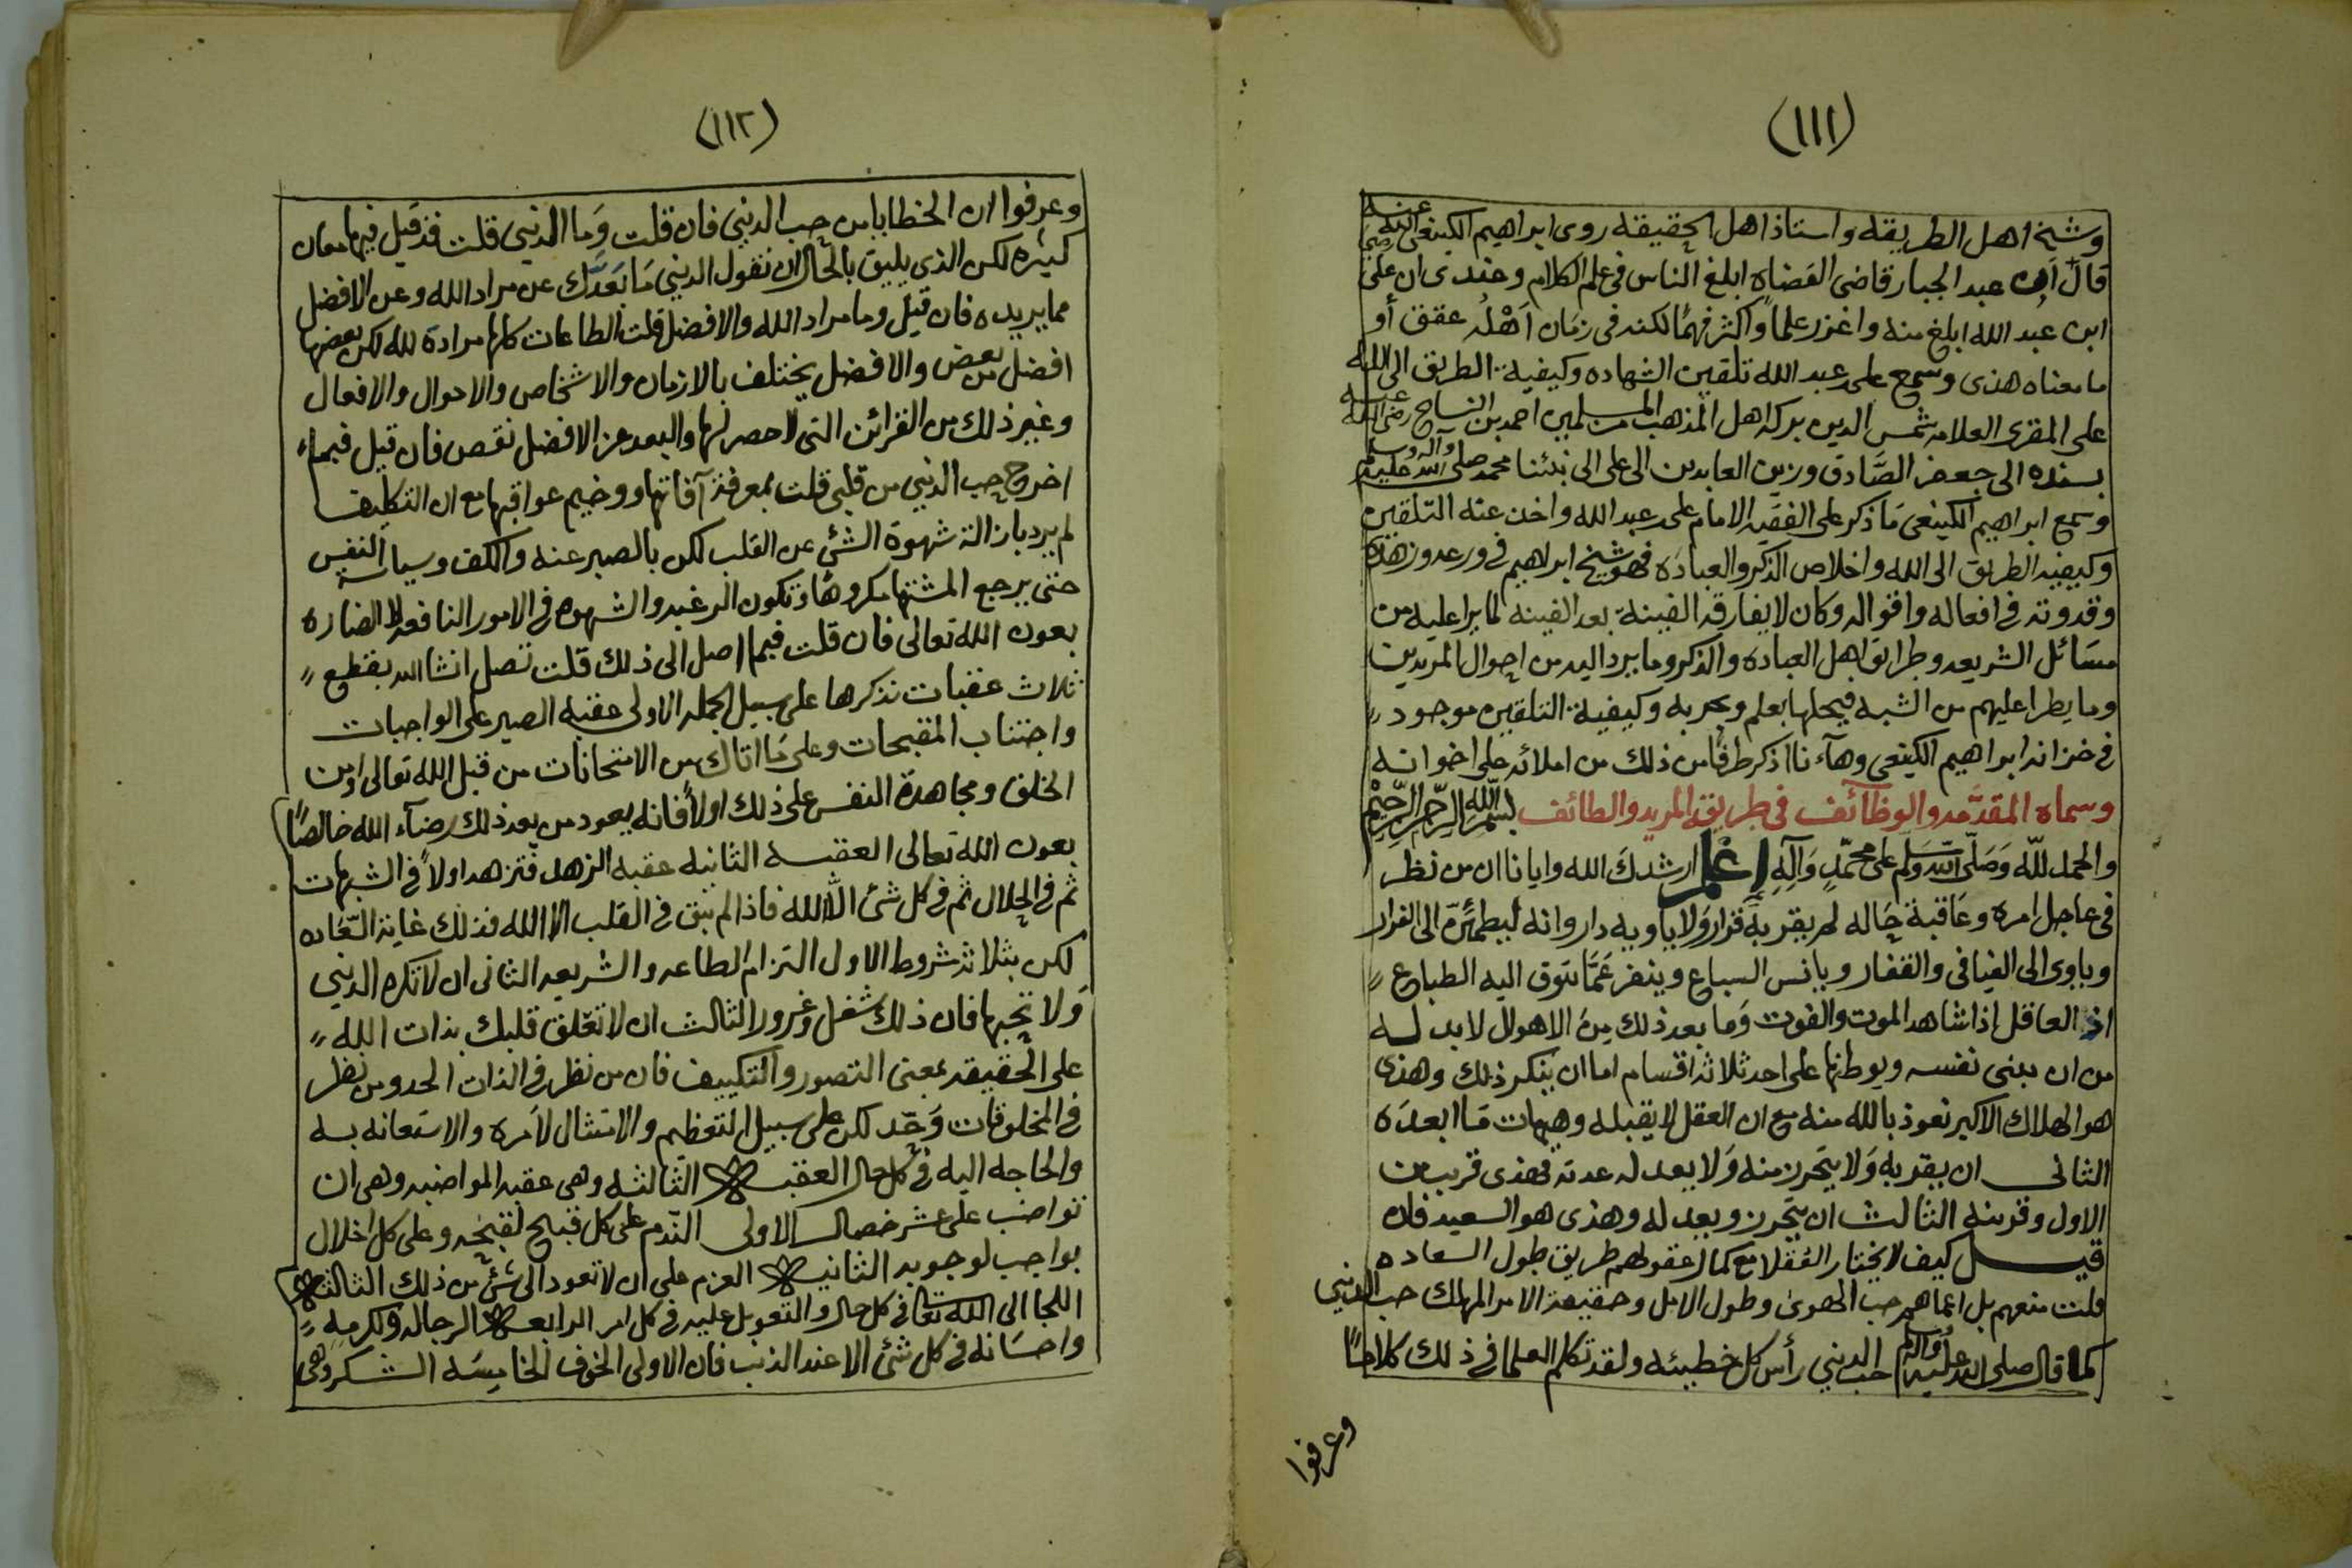 (١١١)
وشيخ اهل الطريقه واستاذ اهل الحقيقه روى ابراهيم الكينعي رضي الله عنه
قال ان عبد الجبار قاضي القضاه ابلغ الناس في علم الكلام وعندي ان علي
ابن عبد الله ابلغ منه واغزر علماً واكثر فهمًا لكنه في زمان اَهْلُه عقق أو
ما معناه هذى وسمع على عبد الله تلقين الشهاده وكيفية الطريق الى الله
على المقري العلامه شمس الدين بركة اهل المذهب من المسلمين احمد بن النساج رضي الله عنه
بسنده الى جعفر الصَّادق وزين العابدين الى علي الى نبئنا محمد صلى الله عليه وآله وسلم
وسمع ابراهيم الكينعي مَا ذكر على الفقيه الامام على عبد الله واخذ عنه التلقين
وكيفيه الطريق الى الله واخلاص الذكر والعبادَه فهو شيخ ابراهيم في ورعه وزهده
وقدوته في افعاله واقواله وكان لا يفارقه الفينة بعد الفينه لما يرا عليه من
مسَائل الشريعه وطرائق اهل العباده والذكر وما يرد اليه من احوال المريدين
وما يطرا عليهم من الشبه فيحلها بعلم وتجربه وكيفية التلقين موجود
في خزانه ابراهيم الكينعي وهآء نا اذكر طرفًا من ذلك من املائه على اخوانه
وسماه المقدَّمه والوظآئف في طريقة المريد والطائف بسم الله الرحمن الرحيم
والحمد لله وَصَلى الله وَسَلم على محمّدٍ وَآلهِ اعْلم ارشدك الله وايانا ان من نظر
في عاجل امره وعَاقبة حَاله لم يقر به قرار وَلا يأويه دار وانه ليطمئنّ الى الفرار
وياوى الى الفيافي والقفار ويانس السباع وينفر عَمَّا تتوق اليه الطباع
اذ العاقل اذا شاهد الموت والفوت وَما بعد ذلك مِن الاهوال لا بد له
من ان يبني نفسه ويوطنها على احد ثلاثه اقسام اما ان ينكر ذلك وهذى
هو الهلاك الاكبر نعوذ بالله منه مع ان العقل لا يقبله وهيهات مَا ابعدَه
الثاني ان يقر به وَلا يتحرز منه وَلا يعد له عدته فهذى قريب من
الاول وقرينه الثالث ان يتحرز ويعد له وهذى هو السعيد فان
قيل كيف لا يختار العُقلا مع كمال عقولهم طريق طول السعاده
قلت منعهم بل اعماهم حب الهوى وطول الامل وحقيقة الامر المهلك حب الدنيي
كما قال صلى الله عليه وآله وسلم حب الدنيي رأس كل خطيئه ولقد تكلم العلما في ذلك كلامًا
وعرفوا
(١١٢)
وعرفوا ان الخطايا من حب الدنيي فان قلت وَما الدنيي قلت قد قيل فيها معان
كثيره لكن الذي يليق بالحال ان نقول الدنيي مَا بَعدَّك عن مراد الله وعن الافضل
مما يريده فان قيل وما مراد الله والافضل قلت الطاعات كلها مرادة لله لكن بعضها
افضل من بعض والافضل يختلف بالازمان والاشخاص والاحوال والافعال
وغير ذلك من القرائن التي لا حصر لها والبعد عن الافضل نقص فان قيل فبماء
اخرج حب الدنيي من قلبي قلت بمعرفة آفاتها ووخيم عواقبها مع ان التكليف
لم يرد بازالة شهوة الشئ عن القلب لكن بالصبر عنه والكف وسياسة النفس
حتى يرجع المشتها مكروهًا وتكون الرغبه والشهوه في الامور النافعه لا الضاره
بعون الله تعالى فان قلت فبما اصل الى ذلك قلت تصل انشا الله بقطع
ثلاث عقبات نذكرها على سبيل الجمله الاولى عقبه الصبر على الواجبات
واجتناب المقبحات وعلى مَا اتاك من الامتحانات من قبل الله تعالى او من
الخلق ومجاهدة النفس على ذلك اولاً فانه يعود من بعد ذلك رضآء الله خالصًا
بعون الله تعالى العقبه الثانيه عقبه الزهد فتزهد اولاً في الشبهات
ثم في الحلال ثم في كل شئ الا الله فاذا لم يبق في القلب الا الله فذلك غاية السَّعَاده
لكن بثلاثه شروط الاول التزام الطاعه والشريعه الثاني ان لا تكره الدنيي
وَلا تحبها فان ذلك شغل وغرور الثالث ان لا تعلق قلبك بذات الله
على الحقيقه بمعنى التصور والتكييف فان من نظر في الذات الحد ومن نظر
في المخلوقات وَحّد لكن على سبيل التعظيم والامتثال لاَمره والاستعانه به
والحاجه اليه في كل حال العقبه الثالثه وهي عقبه المواضبه وهي ان
تواضب على عشر خصال الاولى الندم على كل قبيح لقبحه وعلى كل اخلال
بواجب لوجوبه الثانيه العزم على ان لا تعود الى شئ من ذلك الثالثه
اللجا الى الله تعالى في كل حال والتعويل عليه في كل امر الرابعه الرجا له ولكرمه
واحسَانه في كل شئ الا عند الذنب فان الاولى الخوف الخامِسَه الشكر وهي